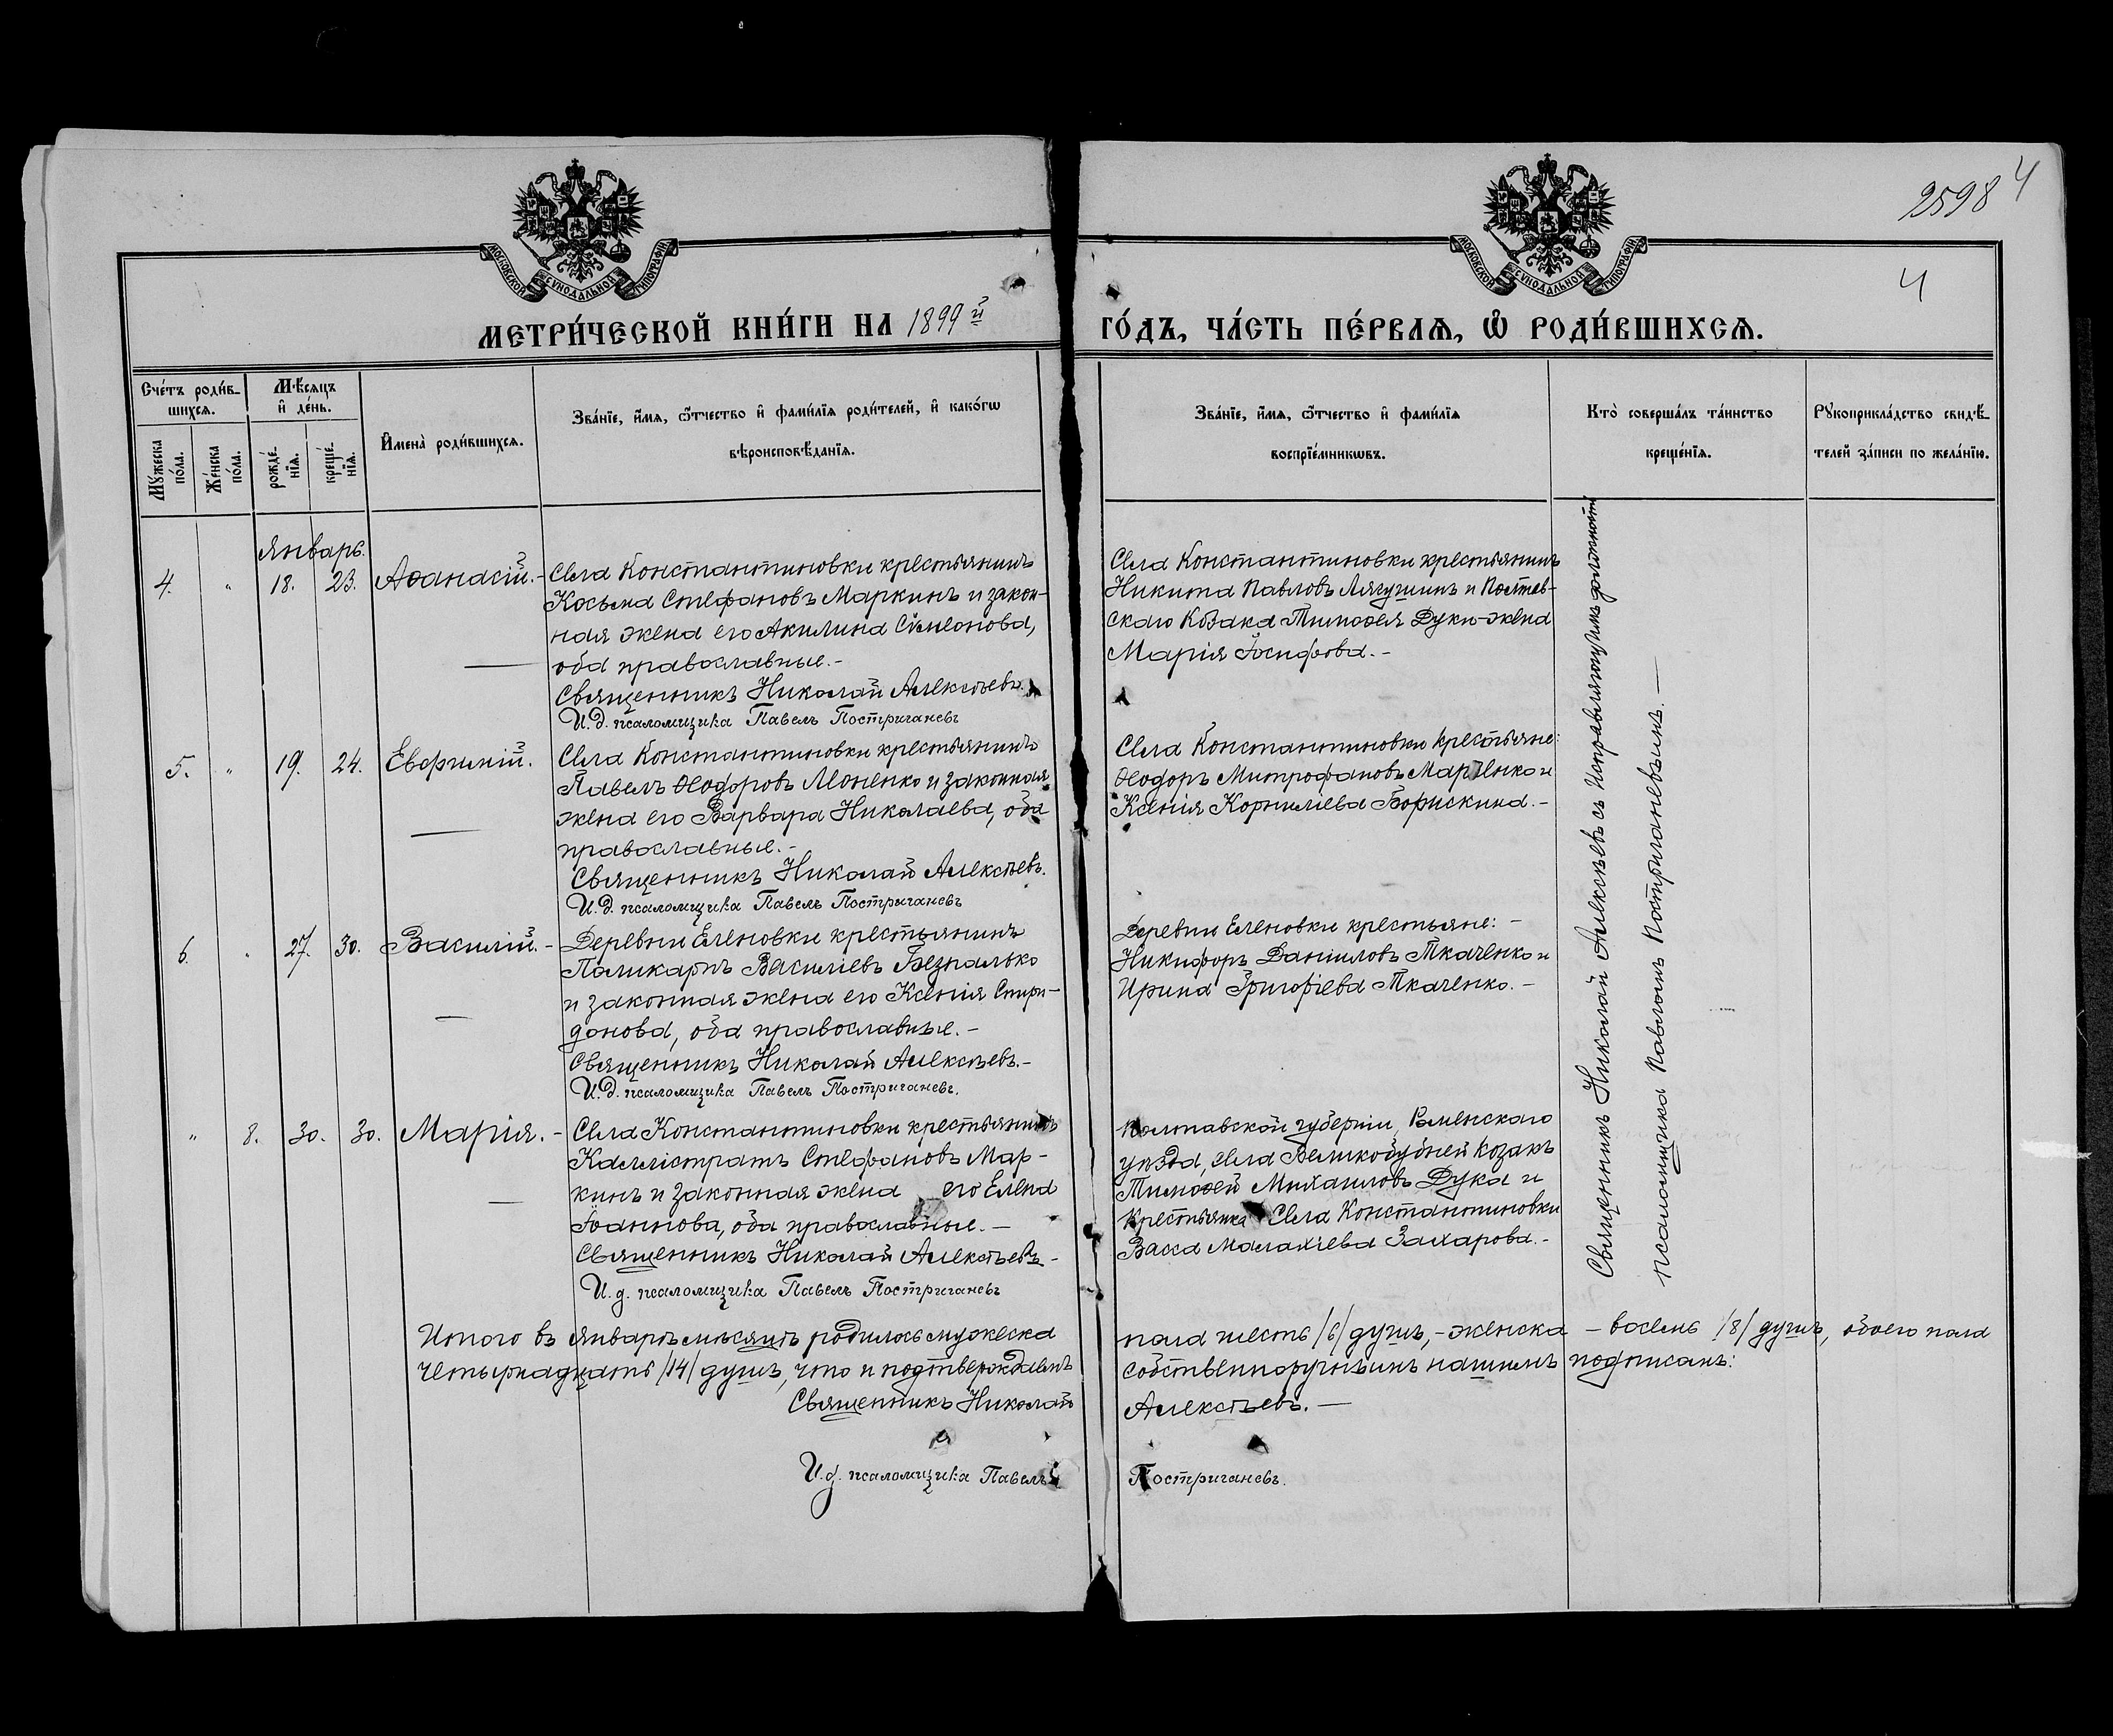 2598 4
4
МОСКОВСКОЙ СѴНОДАЛЬНОЙ ТИПОГРАФІИ
МОСКОВСКОЙ СѴНОДАЛЬНОЙ ТИПОГРАФІИ
МЕТРИ́ЧЕСКОЙ КНИ́ГИ НА 1899й ГО́ДЪ, ЧА́СТЬ ПЕ́РВАѦ, Ѽ РОДИ́ВШИХСѦ.
Сче́тъ роди́в-
шихсѧ.
Мꙋжеска по́ла.
Же́нска по́ла.
Мѣ́сяцъ
и҆ де́нь.
рожде́-
нїѧ.
креще́-
нїѧ.
И҆мена̀ роди́вшихсѧ.
Зва́нїе, и҆́мѧ, ѻ҆́тчество и҆ фами́лїѧ роди́телей, и҆ како́гѡ
вѣроисповѣ́данїѧ.
Зва́нїе, и҆́мѧ, ѻ҆́тчество и҆ фами́лїѧ
воспрїе́мникѡвъ.
Кто̀ соверша́лъ та́инство
креще́нїѧ.
Рꙋкоприкла́дство свидѣ́-
телей за́писи по жела́нїю.
Январь.
4. " 18. 23. Аѳанасій.-
Села Константиновки крестьянинъ
Косьма Стефановъ Маркинъ и закон-
ная жена его Акилина Сѵмеонова,
оба православные.-
Священникъ Николай Алексѣевъ.
И.д. псаломщика Павелъ Постриганевъ
Села Константиновки крестьянинъ
Никита Павловъ Лягушинъ и Полтав-
скаго Козака Тимоѳея Дуки-жена
Марія Іосифова.-
5. " 19. 24. Евѳимій.
Села Константиновки крестьянинъ
Павелъ Ѳеодоровъ Моненко и законная
жена его Варвара Николаева, оба
православные.-
Священникъ Николай Алексѣевъ.
И.д. псаломщика Павелъ Постриганевъ
Села Константиновки крестьяне:
Ѳеодоръ Митрофановъ Марченко и
Ксенія Корниліева Борискина.-
6. " 27. 30. Василій.-
Деревни Еленовки крестьянинъ
Поликарпъ Василіевъ Безпалько
и законная жена его Ксенія Спири-
донова, оба православные.-
Священникъ Николай Алексѣевъ.-
И.д. псаломщика Павелъ Постриганевъ.
Деревни Еленовки крестьяне:-
Никифоръ Даніиловъ Ткаченко и
Ирина Григоріева Ткаченко.-
" 8. 30. 30. Марія.-
Села Константиновки крестьянинъ
Каллістратъ Стефановъ Мар-
кинъ и законная жена его Елена
Іоаннова, оба православные.-
Священникъ Николай Алексѣевъ-
И.д. псаломщика Павелъ Постриганевъ
Полтавской губерніи, Роменскаго
уѣзда, села Великобубней козакъ
Тимоѳей Михаиловъ Дука и
Крестьянка Села Константиновки
Васса Малахіева Захарова.-
Священникъ Николай Алексѣевъ съ Исправляющимъ должность
псаломщика Павломъ Постриганевымъ.-
Итого въ Январѣ мѣсяцѣ родилось мужеска пола шесть /6/ душъ,- женска - восемь /8/ душъ, обоего пола
Четырнадцать /14/ душъ, что и подтверждаемъ собственноручнымъ нашимъ подписомъ:
Священникъ Николай Алексѣевъ.-
И.д. псаломщика Павелъ Постриганевъ.